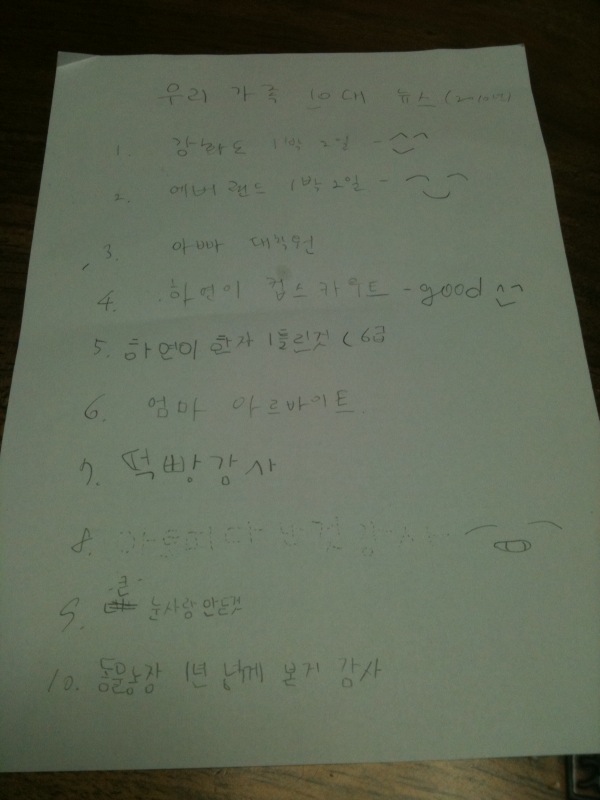 우리 가족 10대 뉴스 (2010년)
1. 강화도 1박 2일 -
2. 에버랜드 1박 2일 -
3. 아빠 대학원
4. 하연이 컵스카우트 - good
5. 하연이 한자 1틀린것 (6급
6. 엄마 아르바이트
7. 떡빵감사
8. 것
9. 큰 눈사람 만든것
10. 동물농장 1년 넘게 본지 감사